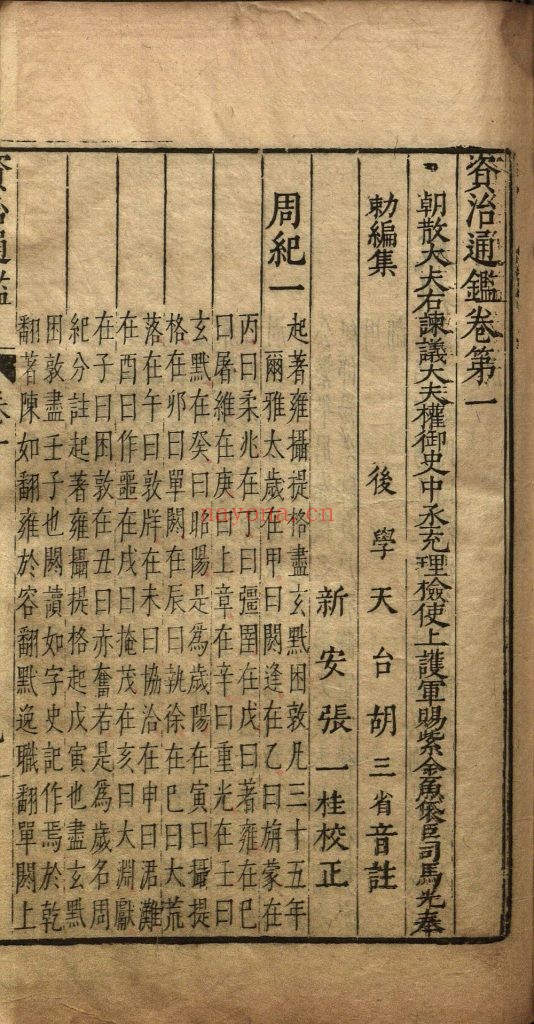 資治通鑑卷第一
朝散大夫右諫議大夫權御史中丞充理檢使上護軍賜紫金魚袋臣司馬光奉
勑編集 後學天台胡三省音註
新安張一桂校正
周紀一 起著雍攝提格盡玄黓困敦凡三十五年
爾雅太歲在甲曰閼逢在乙曰旃蒙在
丙曰柔兆在丁曰彊圉在戊曰著雍在巳
曰屠維在庚曰上章在辛曰重光在壬曰
玄黓在癸曰昭陽是爲歲陽在寅曰攝提
格在卯曰單閼在辰曰執徐在巳曰大荒
落在午曰敦牂在未曰協洽在申曰涒灘
在酉曰作噩在戌曰掩茂在亥曰大淵獻
在子曰困敦在丑曰赤奮若是爲歲名周
紀分註起著雍攝提格起戊寅也盡玄黓
困敦盡壬子也閼讀如字史記作焉於乾
翻著陳如翻雍於容翻黓逸職翻單閼上
資治通鑑
nayona.cn